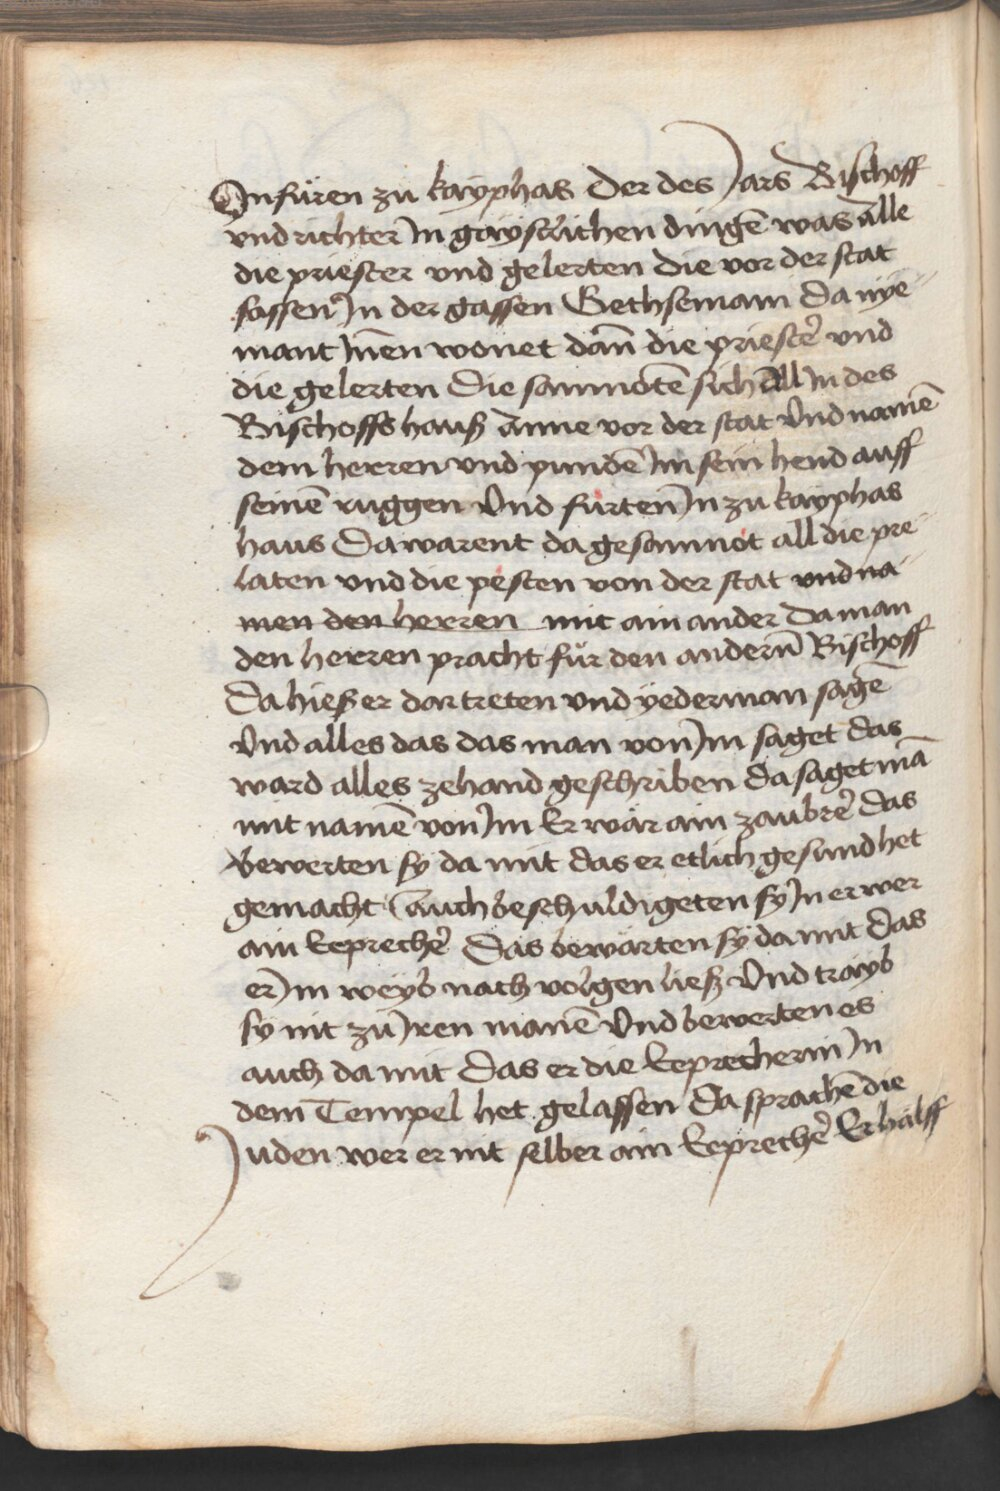 In fuͤren zu kayphas Der des Jars Bischoff
vnd richter In gaystlichen dingē was Alle
die priester vnd gelerten die vor der stat
sassen In der gassen Gethsemani Da nye-
mant Inen wonet dañ die priestē vnd
die gelerten Die samnotē sich All In des
Bischoffs hauß Anne vor der stat Vnd namē
dem herren vnd pundē Im sein hend auff
seinē ruggen Vnd fuͤrten In zu kayphas
haus Da warent da gesamnot all die pre-
laten vnd die pesten von der stat vnd na-
men den herren mit ain ander Da man
den herren pracht fuͤr den andern Bischoff
Da hieß er dar treten vnd yederman sagē
Vnd alles das das man von Im saget das
ward alles zehand geschriben Da saget mā
mit namē von Im Er waͤr ain zaubrē das
bewerten sy da mit das er etlich gesund het
gemacht Auch beschuldigeten sy In er wer
ain Eeprechē Das bewaͤrten sy da mit Das
er Im weyb nach volgen ließ Vnd trayb
sy nit zu Iren manē Vnd bewerten es
auch da mit Das er die Eeprecherin In
dem Tempel het gelassen Da sprachē die
Juden wer er nit selber ain Eeprechē Er hulff